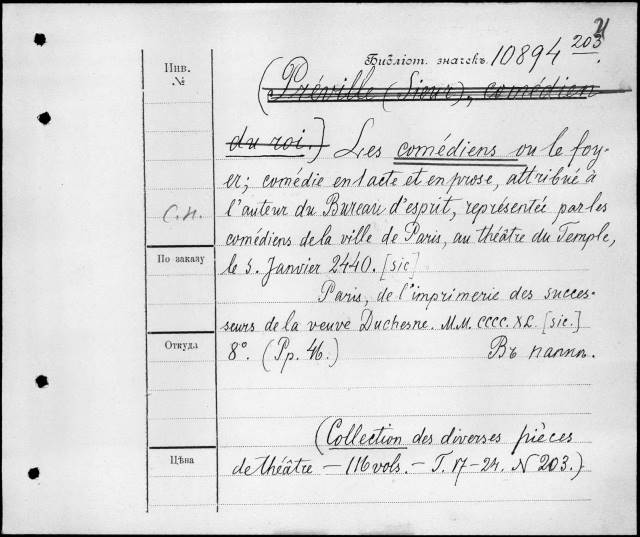 21
Инв.
№
Библіот. значекъ. 10894 203.
(Préville (Sieur), comédien
du roi.) Les comédiens ou le foy-
er; comédie en 1 acte et en prose, attribué à
l'auteur du Bureau d'esprit, représentée par les
С.п.
comédiens de la ville de Paris, au théâtre du Temple,
По заказу
le 5. Janvier 2440. [sic]
Paris, de l'imprimerie des succes-
seurs de la veuve Duchesne. M.M. CCCC. XL. [sic.]
Откуда
8°. (Pp. 46.) Въ паппк.
(Collection des diverses pièces
Цѣна
de théâtre – 116 vols. – T. 17–24. N 203.)